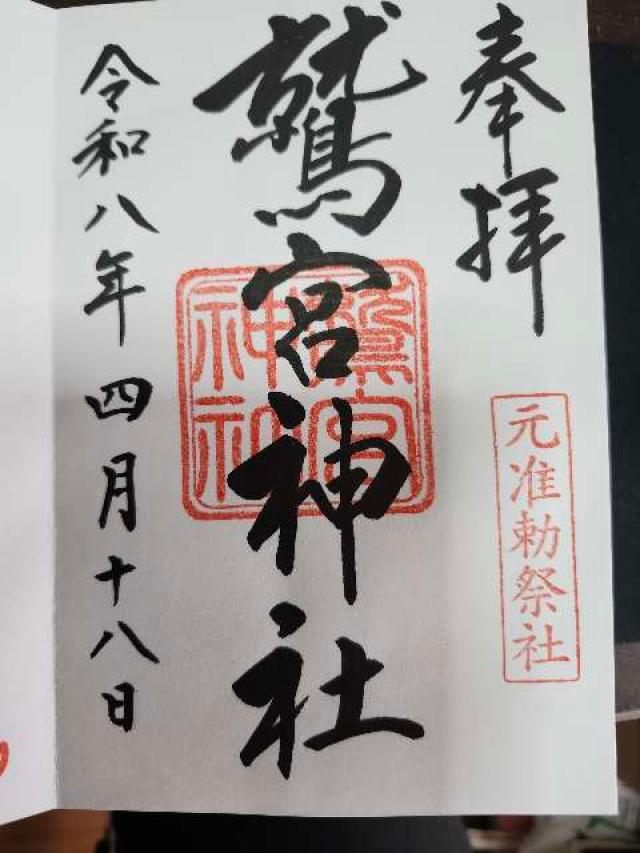 奉拝
元准勅祭社
鷲宮神社
鷲宮
神社
令和八年四月十八日